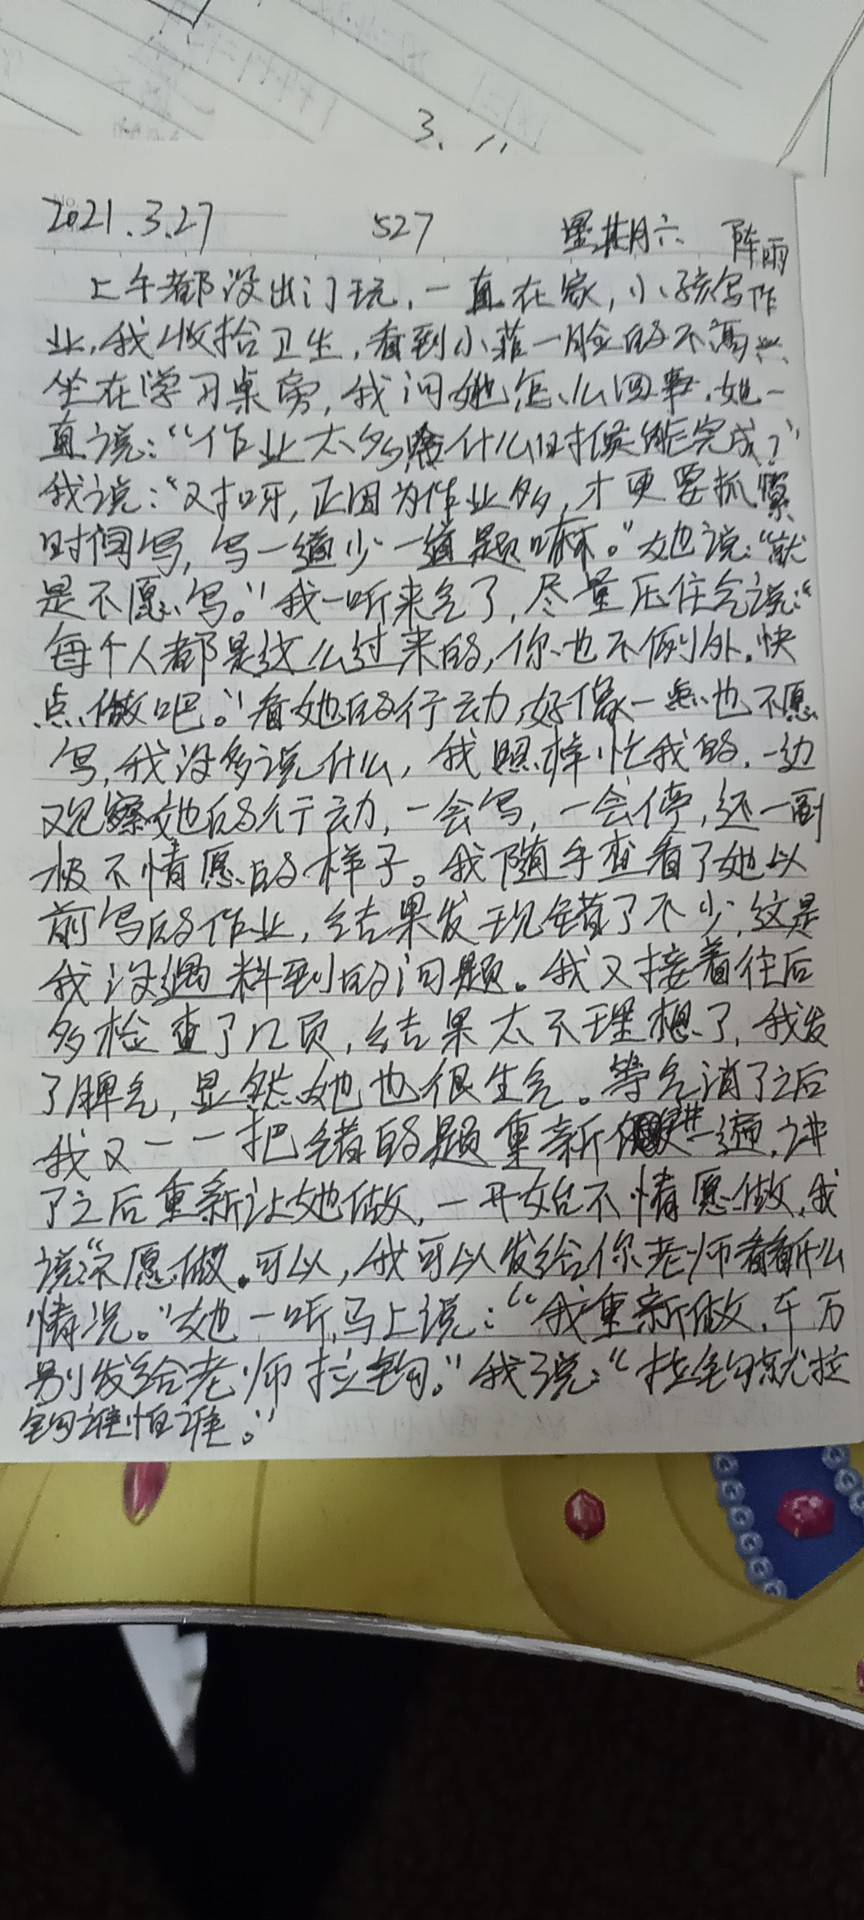 3.
2021.3.27 527 星期六 阵雨
上午都没出门玩,一直在家,小孩写作
业,我收拾卫生,看到小菲一脸的不高兴
坐在学习桌旁,我问她怎么回事,她一
直说:“作业太多,啥什么时候能完成?”
我说:“对呀,正因为作业多,才更要抓紧
时间写,写一道少一道题嘛。”她说:“就
是不愿写。”我一听来气了,尽量压住气说:“
每个人都是这么过来的,你也不例外,快
点做吧。”看她的行动,好像一点也不愿
写,我没多说什么,我照样忙我的,一边
观察她的行动,一会写,一会停,还一副
极不情愿的样子。我随手查看了她以
前写的作业,结果发现错了不少,这是
我没遇料到的问题。我又接着往后
多检查了几页,结果太不理想了,我发
了脾气,显然她也很生气。等气消了之后
我又一一把错的题重新讲一遍,讲
了之后重新让她做,一开始不情愿做,我
说“不愿做,可以,我可以发给你老师看看什么
情况。”她一听,马上说:“我重新做,千万
别发给老师拉钩。”我说:“拉钩就拉
钩谁怕谁。”